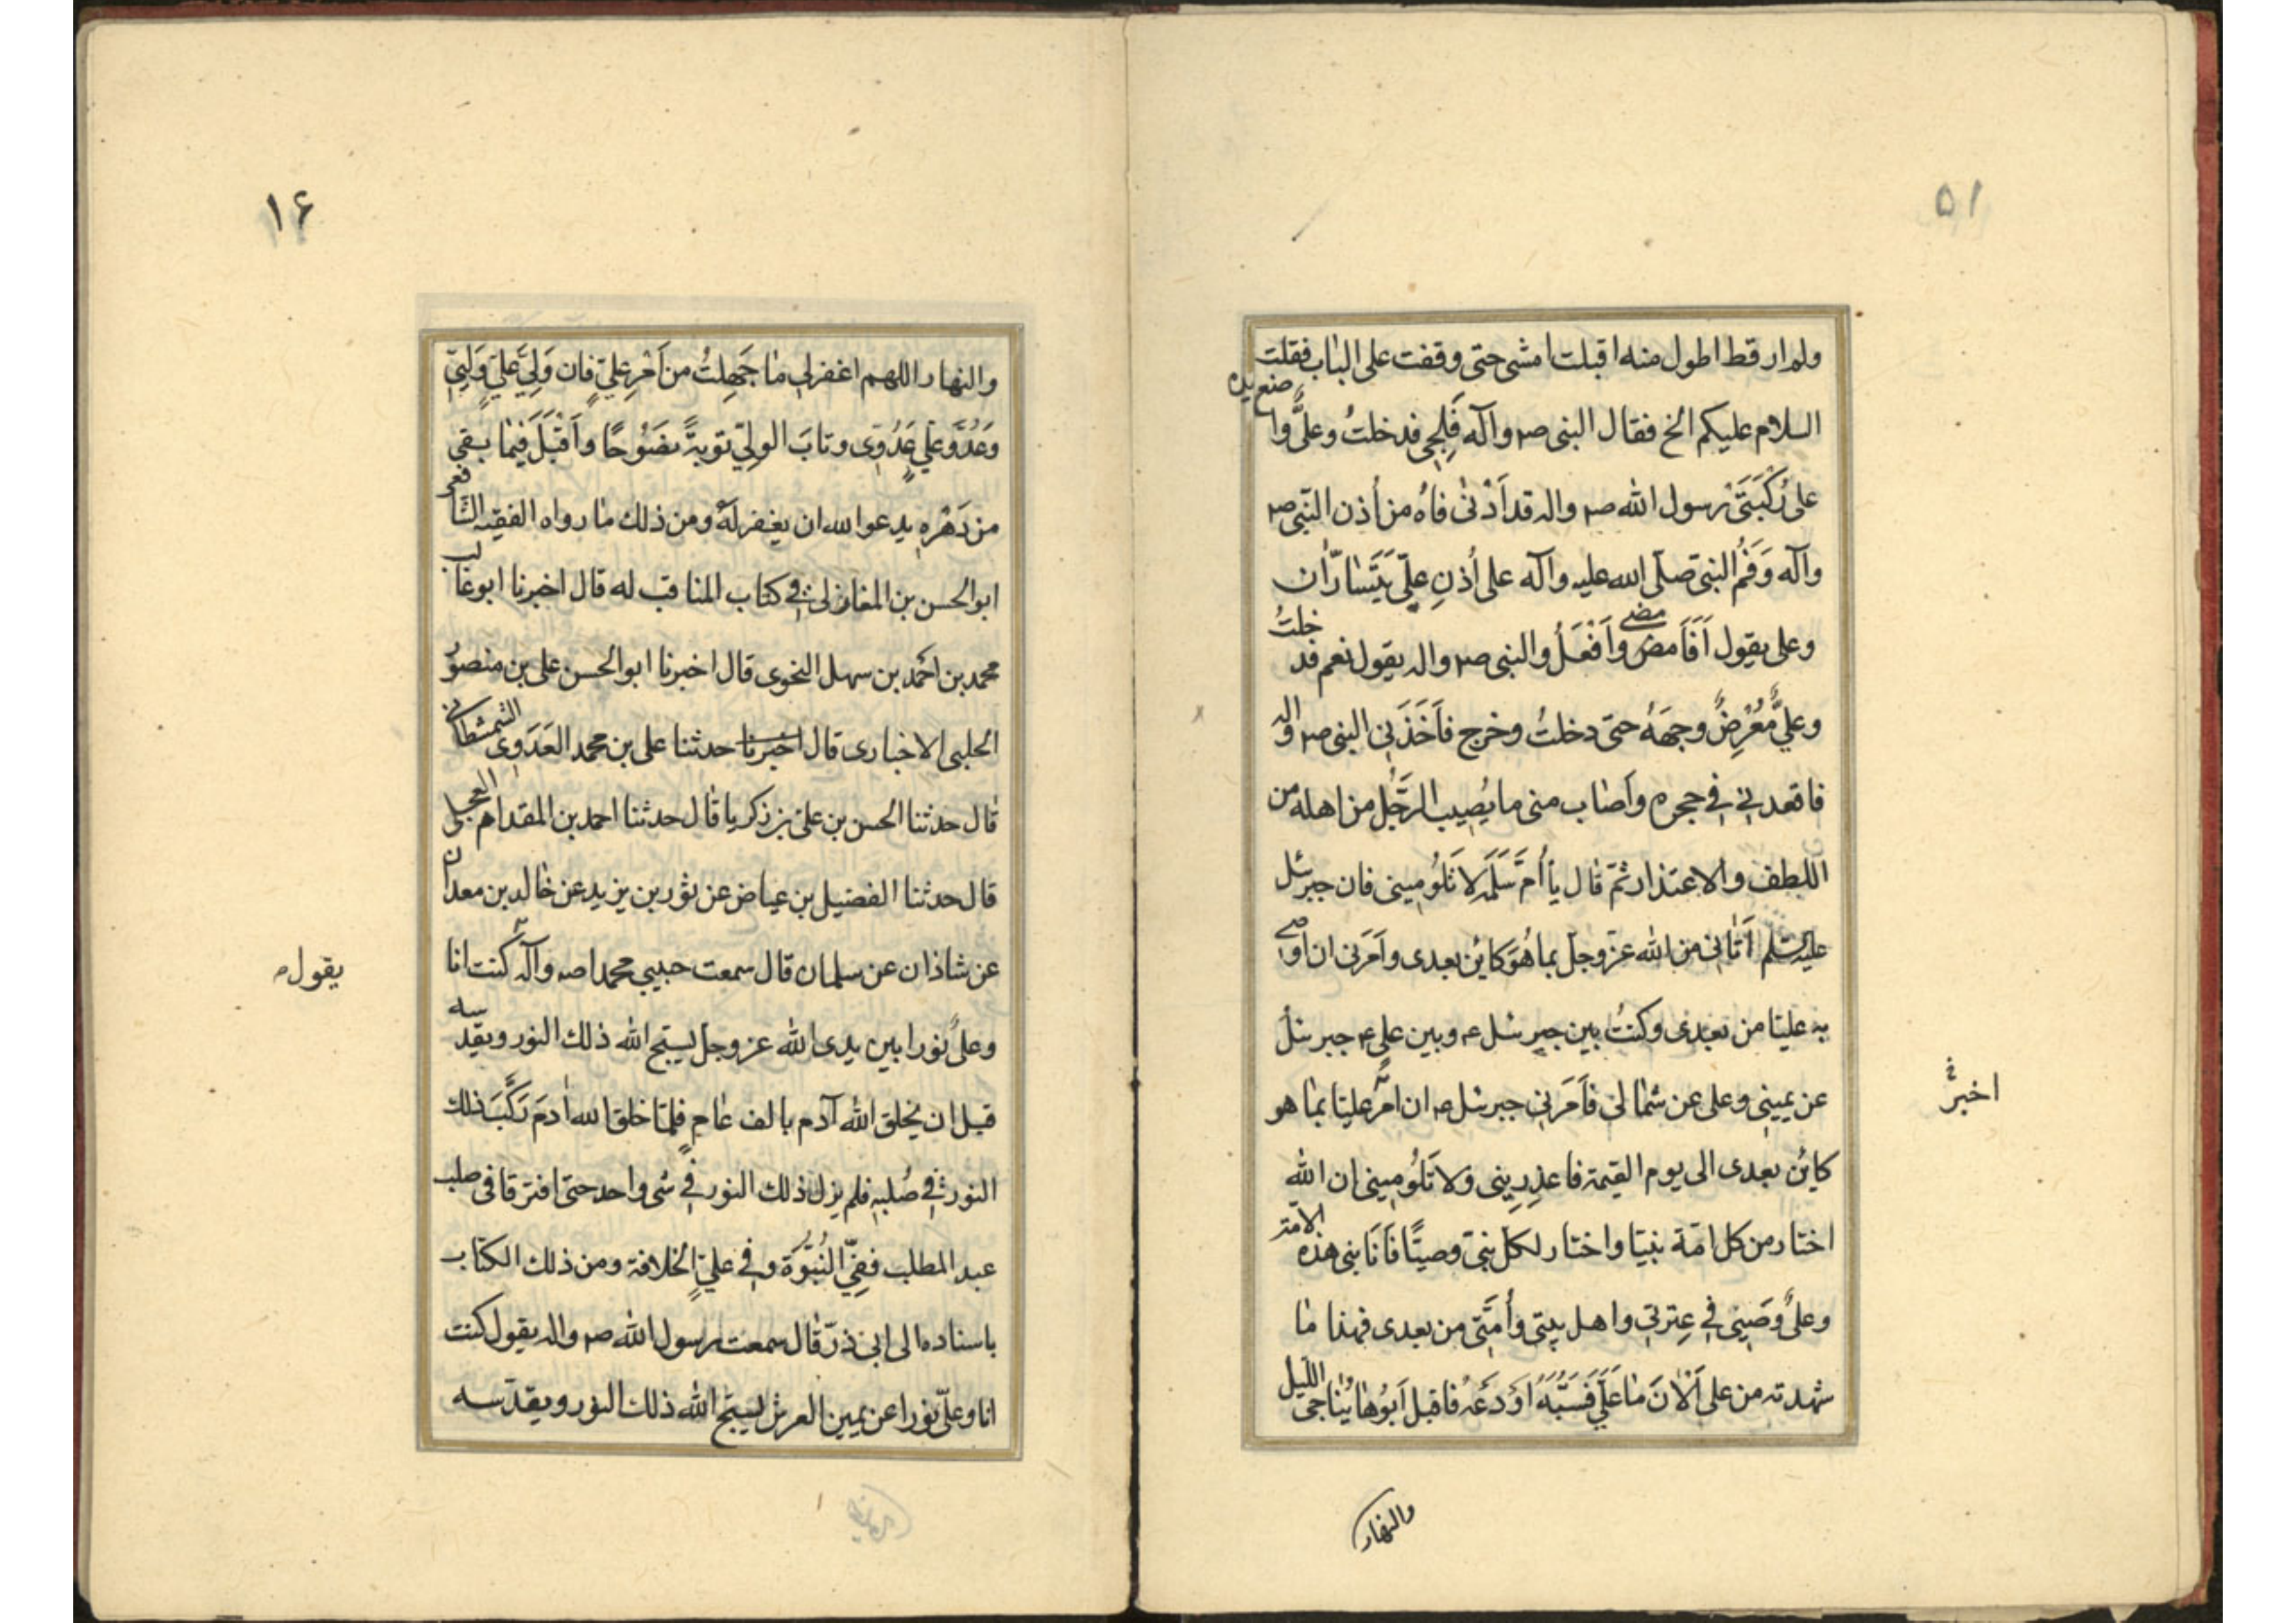 ۵۱
ولم ار قط اطول منه اقبلت امشى حتى وقفت على الباب فقلت
السلام عليكم الخ فقال النبى ص وآله فَلِجِى فدخلتُ وعلىٌّ واضع يده
على رُكْبَتَىْ رسول الله ص واله قد اَدْنى فاهُ من اُذن النّبى ص
وآله وَفَمُ النبىّ صلّى الله عليه وآله على اُذنِ علِىّ يَتَسارّان
وعلى يقول اَفَاَمضى واَفْعَلُ والنبى ص واله يقول نعم فدخلتُ
وعلىٌّ مُعْرِضٌ وجهَهُ حتى دخلتُ وخرج فاَخَذَنِى النبى ص واله
فاقعدنى فى حجره واَصاب منى ما يُصِيب الرَّجُل من اهله من
اللطف والاعتذار ثمّ قال يا اُمَّ سَلَمَة لا تَلُومِينى فان جبرئل
عليه السّلم اَتانى من الله عزّوجلّ بما هُوَ كاين بعدى واَمَرَنى ان اوصى
به عليّا من بعدى وكنتُ بين جبرئل ء وبين علىٍ ء جبرئل
عن يمينى وعلى عن شمالى فاَمَرَنِى جبرئل ء ان امُرَ عليّا بما هو
اخبر خ
كائن بعدى الى يوم القيمة فاعذِرِينى ولا تَلُومِينى ان الله
اختار من كل امّة نبيّا واختار لكل نبىّ وصيّا فاَنَا نبى هذه الامّة
وعلىٌّ وَصِيّى فى عِترتى واهل بيتى واُمَّتى من بعدى فهذا ما
شهدته من على اَلْاٰنَ ما عَلَىَّ فَسَبِّهُ اَوْ دَعْهُ فاقبل اَبُوها يُناجى الليل
والنهار
۱۶
والنهار اللهم اغفر لى ما جَهِلتُ من اَمْرِ علِىٍّ فان وَلِىَّ علِىٍّ وَلِيّى
وَعَدُوَّ علِىٍ عَدُوّى وتابَ الولِىّ توبةً نصَوُحًا واَقْبَلَ فيما بقى
من دَهْرِهِ يدعوا لله ان يغفر لَهُ ومن ذلك ما رواه الفقيه الشافعى
ابو الحسن بن المغازلى فى كتاب المناقب له قال اخبرنا ابو غالب
محمد بن احمد بن سهل النحوى قال اخبرنا ابو الحسن على بن منصور
الحلبى الاخبارى قال اخبرنا حدثنا على بن محمد العَدَوِى الشمشطانى
قال حدثنا الحسن بن على بن زكريا قال حدثنا احمد بن المقدام العجلى
قال حدثنا الفضيل بن عياض عن ثور بن يزيد عن خالد بن معدان
عن شاذان عن سلمان قال سمعت حبيبى محمدا ص وآله كنت انا
يقول
وعلىٌّ نورا بين يدى الله عزوجلّ يسبّح الله ذلك النور ويقدّسه
قبل ان يخلق الله آدم بالف عامٍ فلمّا خلق الله اٰدمَ رَكَّبَ ذلك
النور فى صُلبِهِ فلم يزل ذلك النور فى شى واحد حتى افترقا فى صلب
عبد المطلب ففِىَّ النُبُوَّة وفى علىٍ الخلافة ومن ذلك الكتاب
باسناده الى ابى ذرّ قال سمعت رسول الله ص واله يقول كنت
انا وعلىّ نورا عن يمين العرش يسبّح الله ذلك النور ويقدّسه